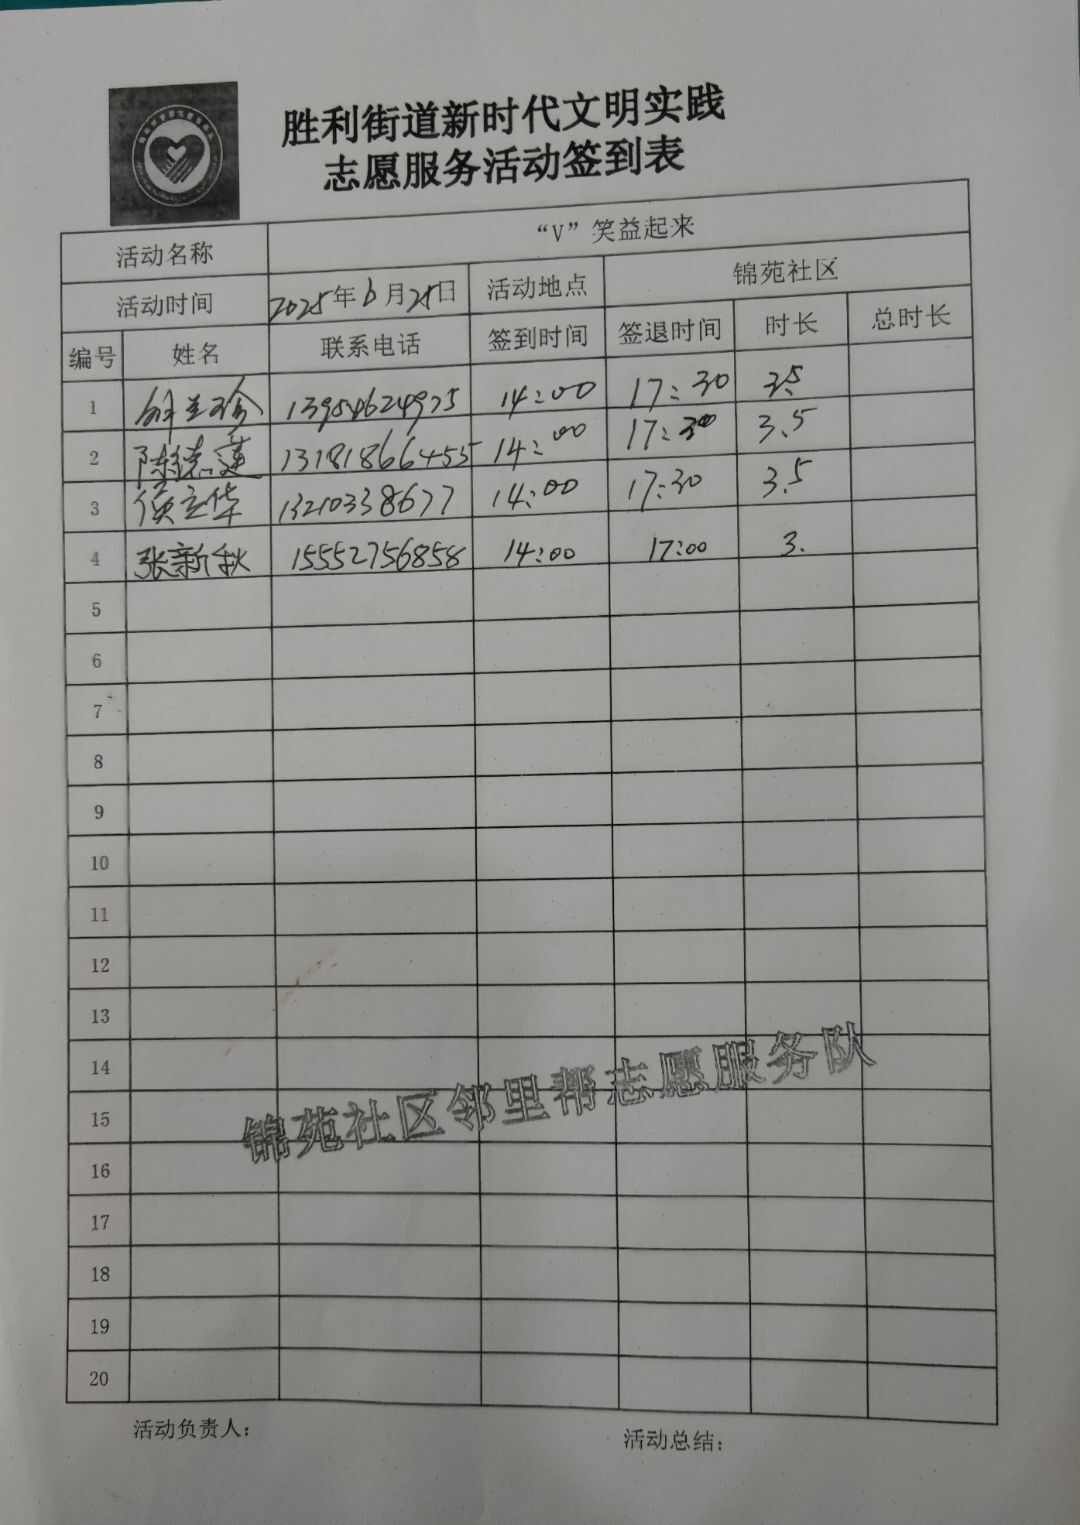 胜利街道新时代文明实践
志愿服务活动签到表
活动名称 “V”笑益起来
活动时间 2025年6月25日 活动地点 锦苑社区
编号 姓名 联系电话 签到时间 签退时间 时长 总时长
1 13954624975 14:00 17:30 3.5
2 陈德莲 13181866455 14:00 17:30 3.5
3 侯立华 13210338677 14:00 17:30 3.5
4 张新秋 15552756858 14:00 17:00 3.
5
6
7
8
9
10
11
12
13
14
15
16
17
18
19
20
锦苑社区邻里帮志愿服务队
活动负责人： 活动总结：